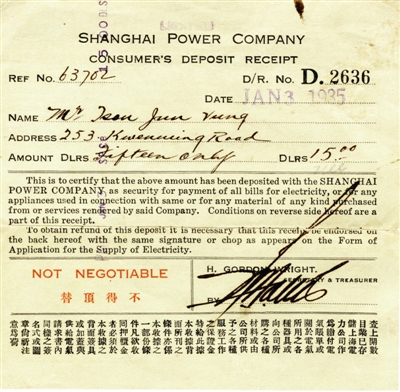 SHANGHAI POWER COMPANY
CONSUMER'S DEPOSIT RECEIPT
REF NO. 63702 D/R. NO. D. 2636
DATE JAN 3 1935
NAME Mr Tsou Jun Vung
ADDRESS 253 Kwenming Road
AMOUNT DLRS Fifteen Only DLRS 15.00
This is to certify that the above amount has been deposited with the SHANGHAI
POWER COMPANY, as security for payment of all bills for electricity, or for any
appliances used in connection with same or for any material of any kind purchased
from or services rendered by said Company. Conditions on reverse side hereof are a
part of this receipt.
To obtain refund of this deposit it is necessary that this receipt be endorsed on
the back hereof with the same signature or chop as appears on the Form of
Application for the Supply of Electricity.
NOT NEGOTIABLE
不得頂替
H. GORDON WRIGHT.
SECRETARY & TREASURER
BY
查上開數
目業已存
儲上海電
力公司作
氣賬單或
所用之各
種器具或
購各種材
予之各種
服務工作
之保證金
特給此據
本收據之
一部份
凡欲收回
本收據之
供電氣
請求書
名或圖
意為荷